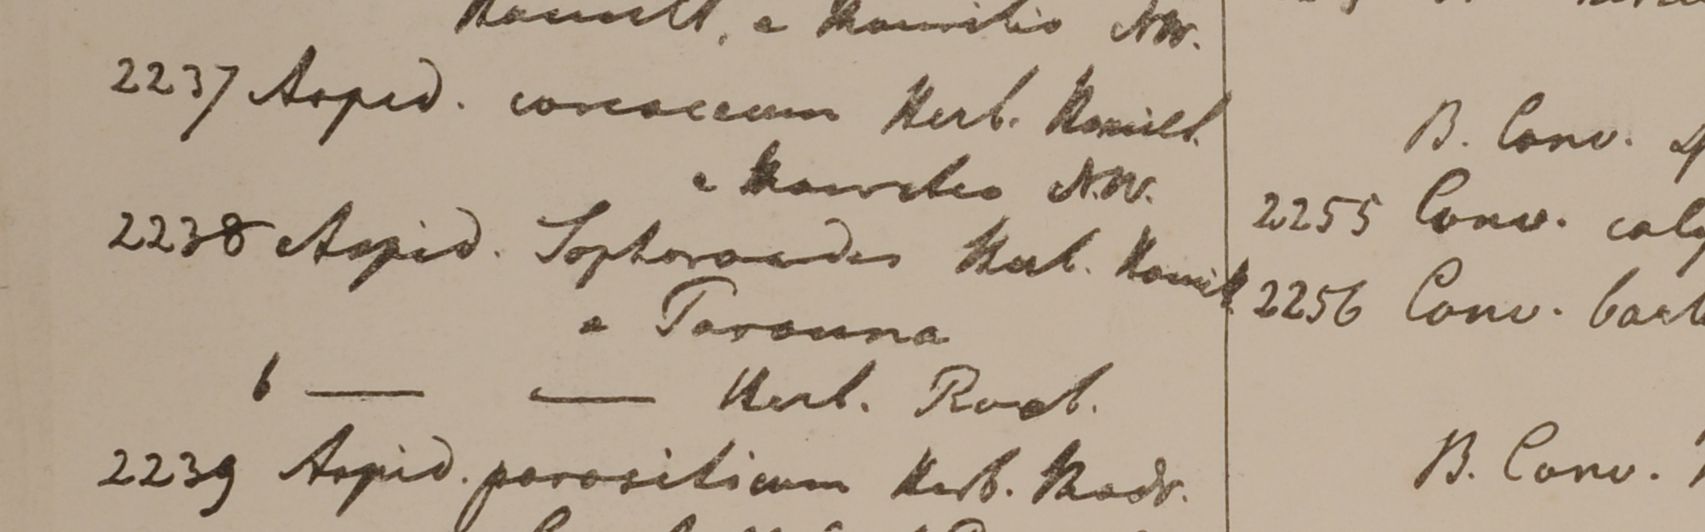 Hamilt. e Mauritio NW.
2237 Aspid. coriaceum Herb. Hamilt.
e Mauritio N.W.
2238 Aspid. Sophoroides Herb. Hamilt.
a
b — — Herb. Roxb.
2239 Aspid. parasiticum Herb. Madr.
B. Conv.
2255 Conv.
2256 Conv.
B. Conv.